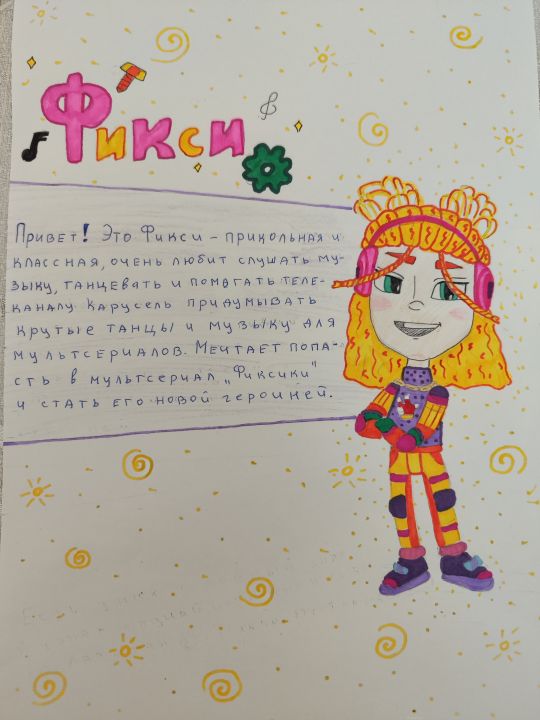 Фикси
Привет! Это Фикси – прикольная и
классная, очень любит слушать му-
зыку, танцевать и помагать теле-
каналу Карусель придумывать
крутые танцы и музыку для
мультсериалов. Мечтает попа-
сть в мультсериал „Фиксики"
и стать его новой героиней.